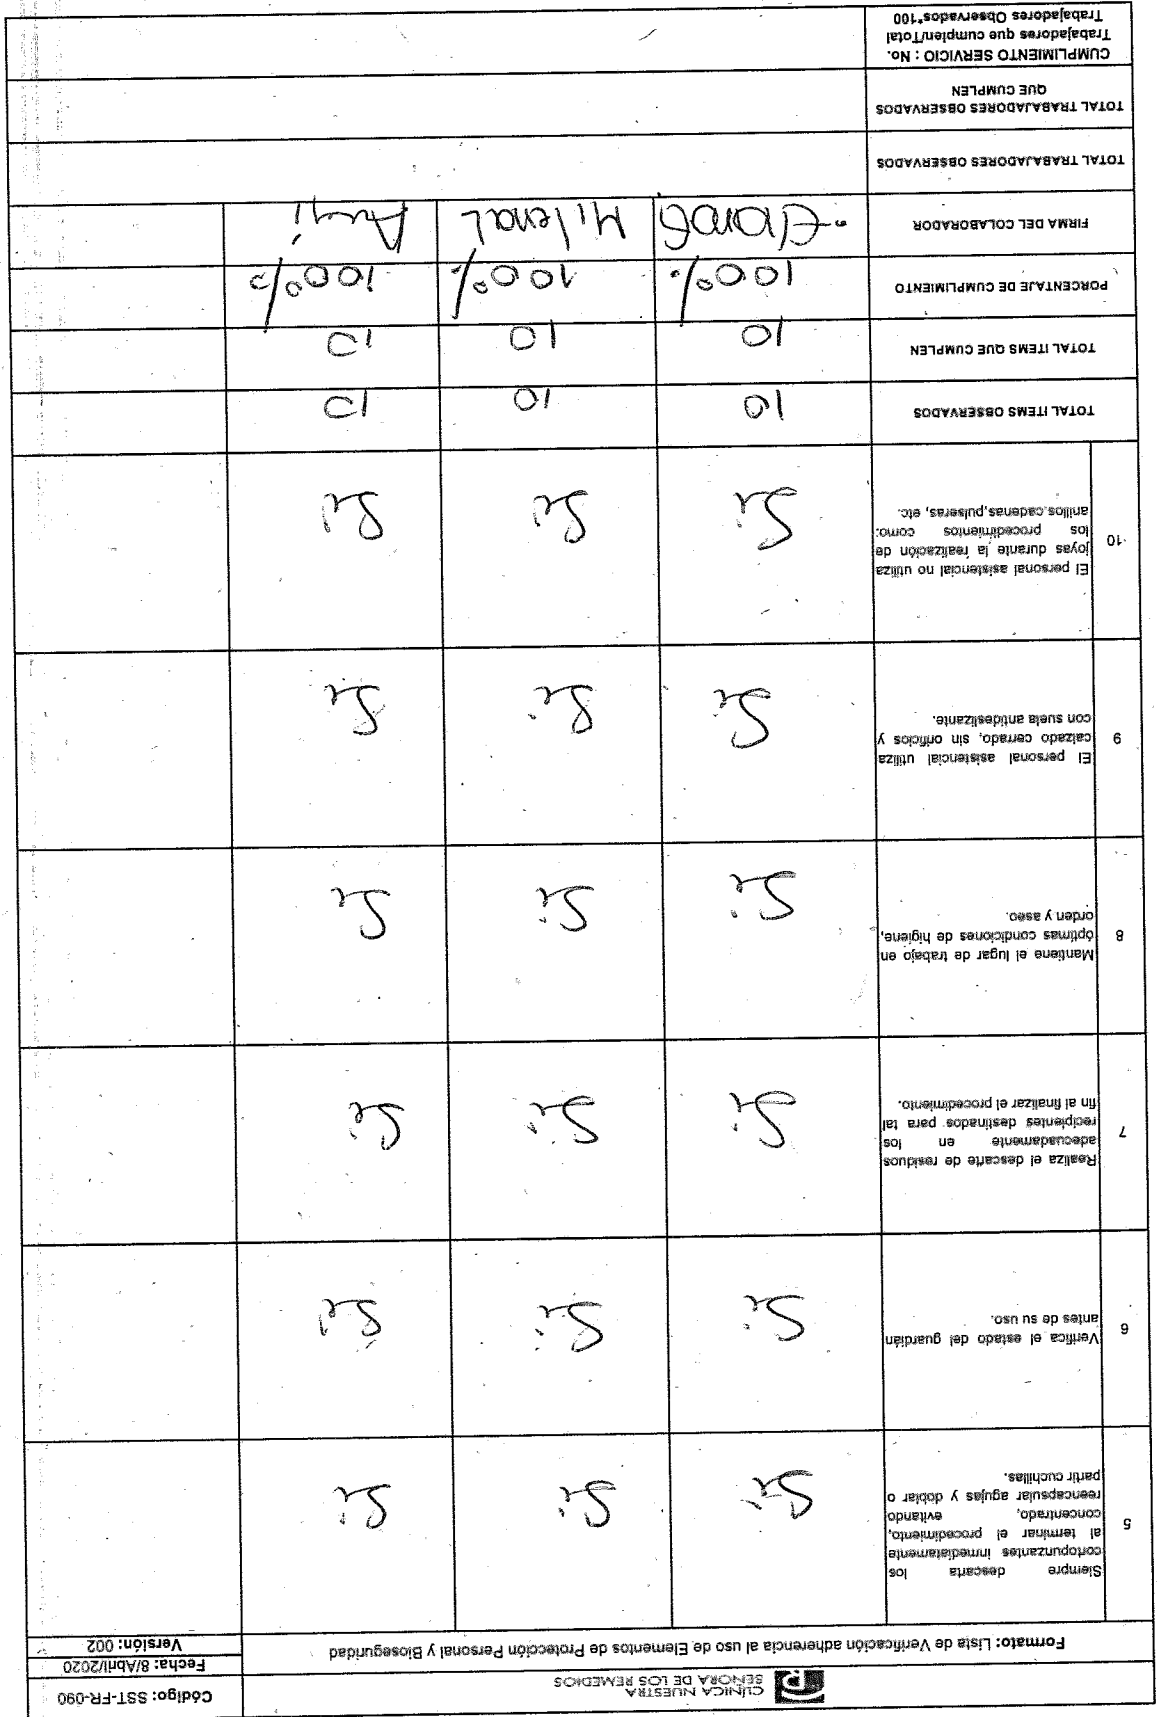 CLÍNICA NUESTRA
SEÑORA DE LOS REMEDIOS
Código: SST-FR-090
Fecha: 8/Abril/2020
Formato: Lista de Verificación adherencia al uso de Elementos de Protección Personal y Bioseguridad
Versión: 002
5
Siempre descarta los
cortopunzantes inmediatamente
al terminar el procedimiento,
concentrado, evitando
reencapsular agujas y doblar o
partir cuchillas.
Si Si Si
6
Verifica el estado del guardián
antes de su uso.
Si Si Si
7
Realiza el descarte de residuos
adecuadamente en los
recipientes destinados para tal
fin al finalizar el procedimiento.
Si Si Si
8
Mantiene el lugar de trabajo en
óptimas condiciones de higiene,
orden y aseo.
Si Si Si
9
El personal asistencial utiliza
calzado cerrado, sin orificios y
con suela antideslizante.
Si Si Si
10
El personal asistencial no utiliza
joyas durante la realización de
los procedimientos como:
anillos,cadenas,pulseras, etc.
Si Si Si
TOTAL ITEMS OBSERVADOS 10 10 10
TOTAL ITEMS QUE CUMPLEN 10 10 10
PORCENTAJE DE CUMPLIMIENTO 100% 100% 100%
FIRMA DEL COLABORADOR Milena Angi
TOTAL TRABAJADORES OBSERVADOS
TOTAL TRABAJADORES OBSERVADOS
QUE CUMPLEN
CUMPLIMIENTO SERVICIO : No.
Trabajadores que cumplen/Total
Trabajadores Observados*100